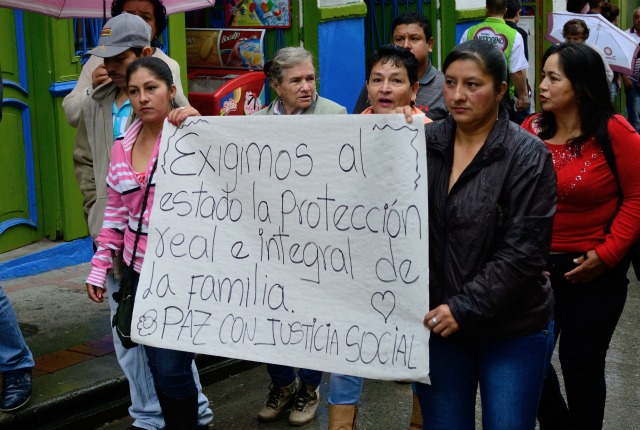 ¡Exigimos al
estado la Protección
real e integral de
La Familia.
PAZ CON JUSTICIA SOCIAL